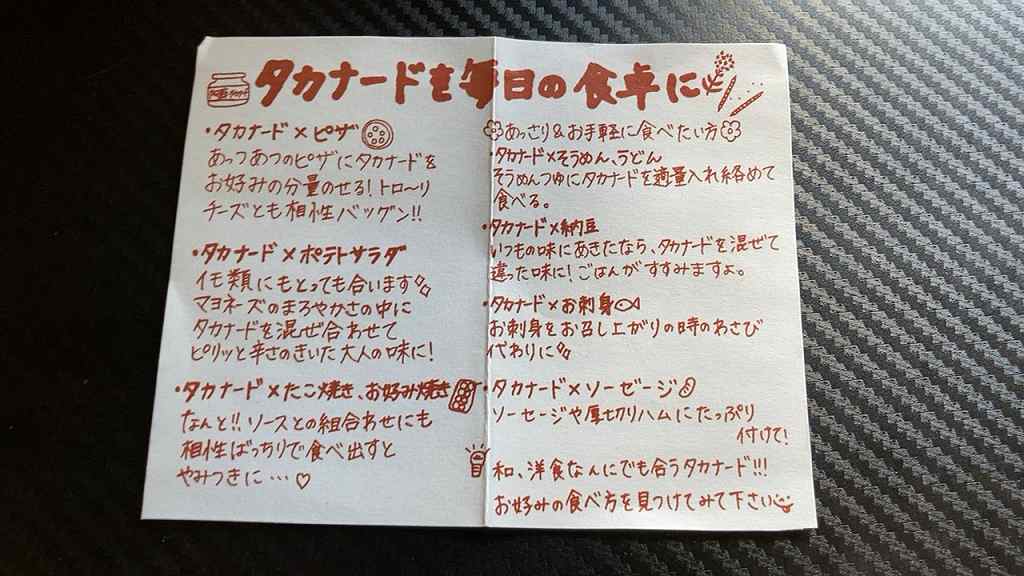 タカナードを毎日の食卓に
・タカナード×ピザ
あっつあつのピザにタカナードを
お好みの分量のせる!トロ〜リ
チーズとも相性バッグン!!
・タカナード×ポテトサラダ
イモ類にもとっても合います
マヨネーズのまろやかさの中に
タカナードを混ぜ合わせて
ピリッと辛さのきいた大人の味に!
・タカナード×たこ焼き、お好み焼き
なんと!!ソースとの組合わせにも
相性ばっちりで食べ出すと
やみつきに…♡
あっさり&お手軽に食べたい方
・タカナード×そうめん、うどん
そうめんつゆにタカナードを適量入れ絡めて
食べる。
・タカナード×納豆
いつもの味にあきたなら、タカナードを混ぜて
違った味に!ごはんがすすみますよ。
・タカナード×お刺身
お刺身をお召し上がりの時のわさび
代わりに
・タカナード×ソーゼージ
ソーセージや厚切りハムにたっぷり
付けて!
和、洋食なんにでも合うタカナード!!!
お好みの食べ方を見つけてみて下さい